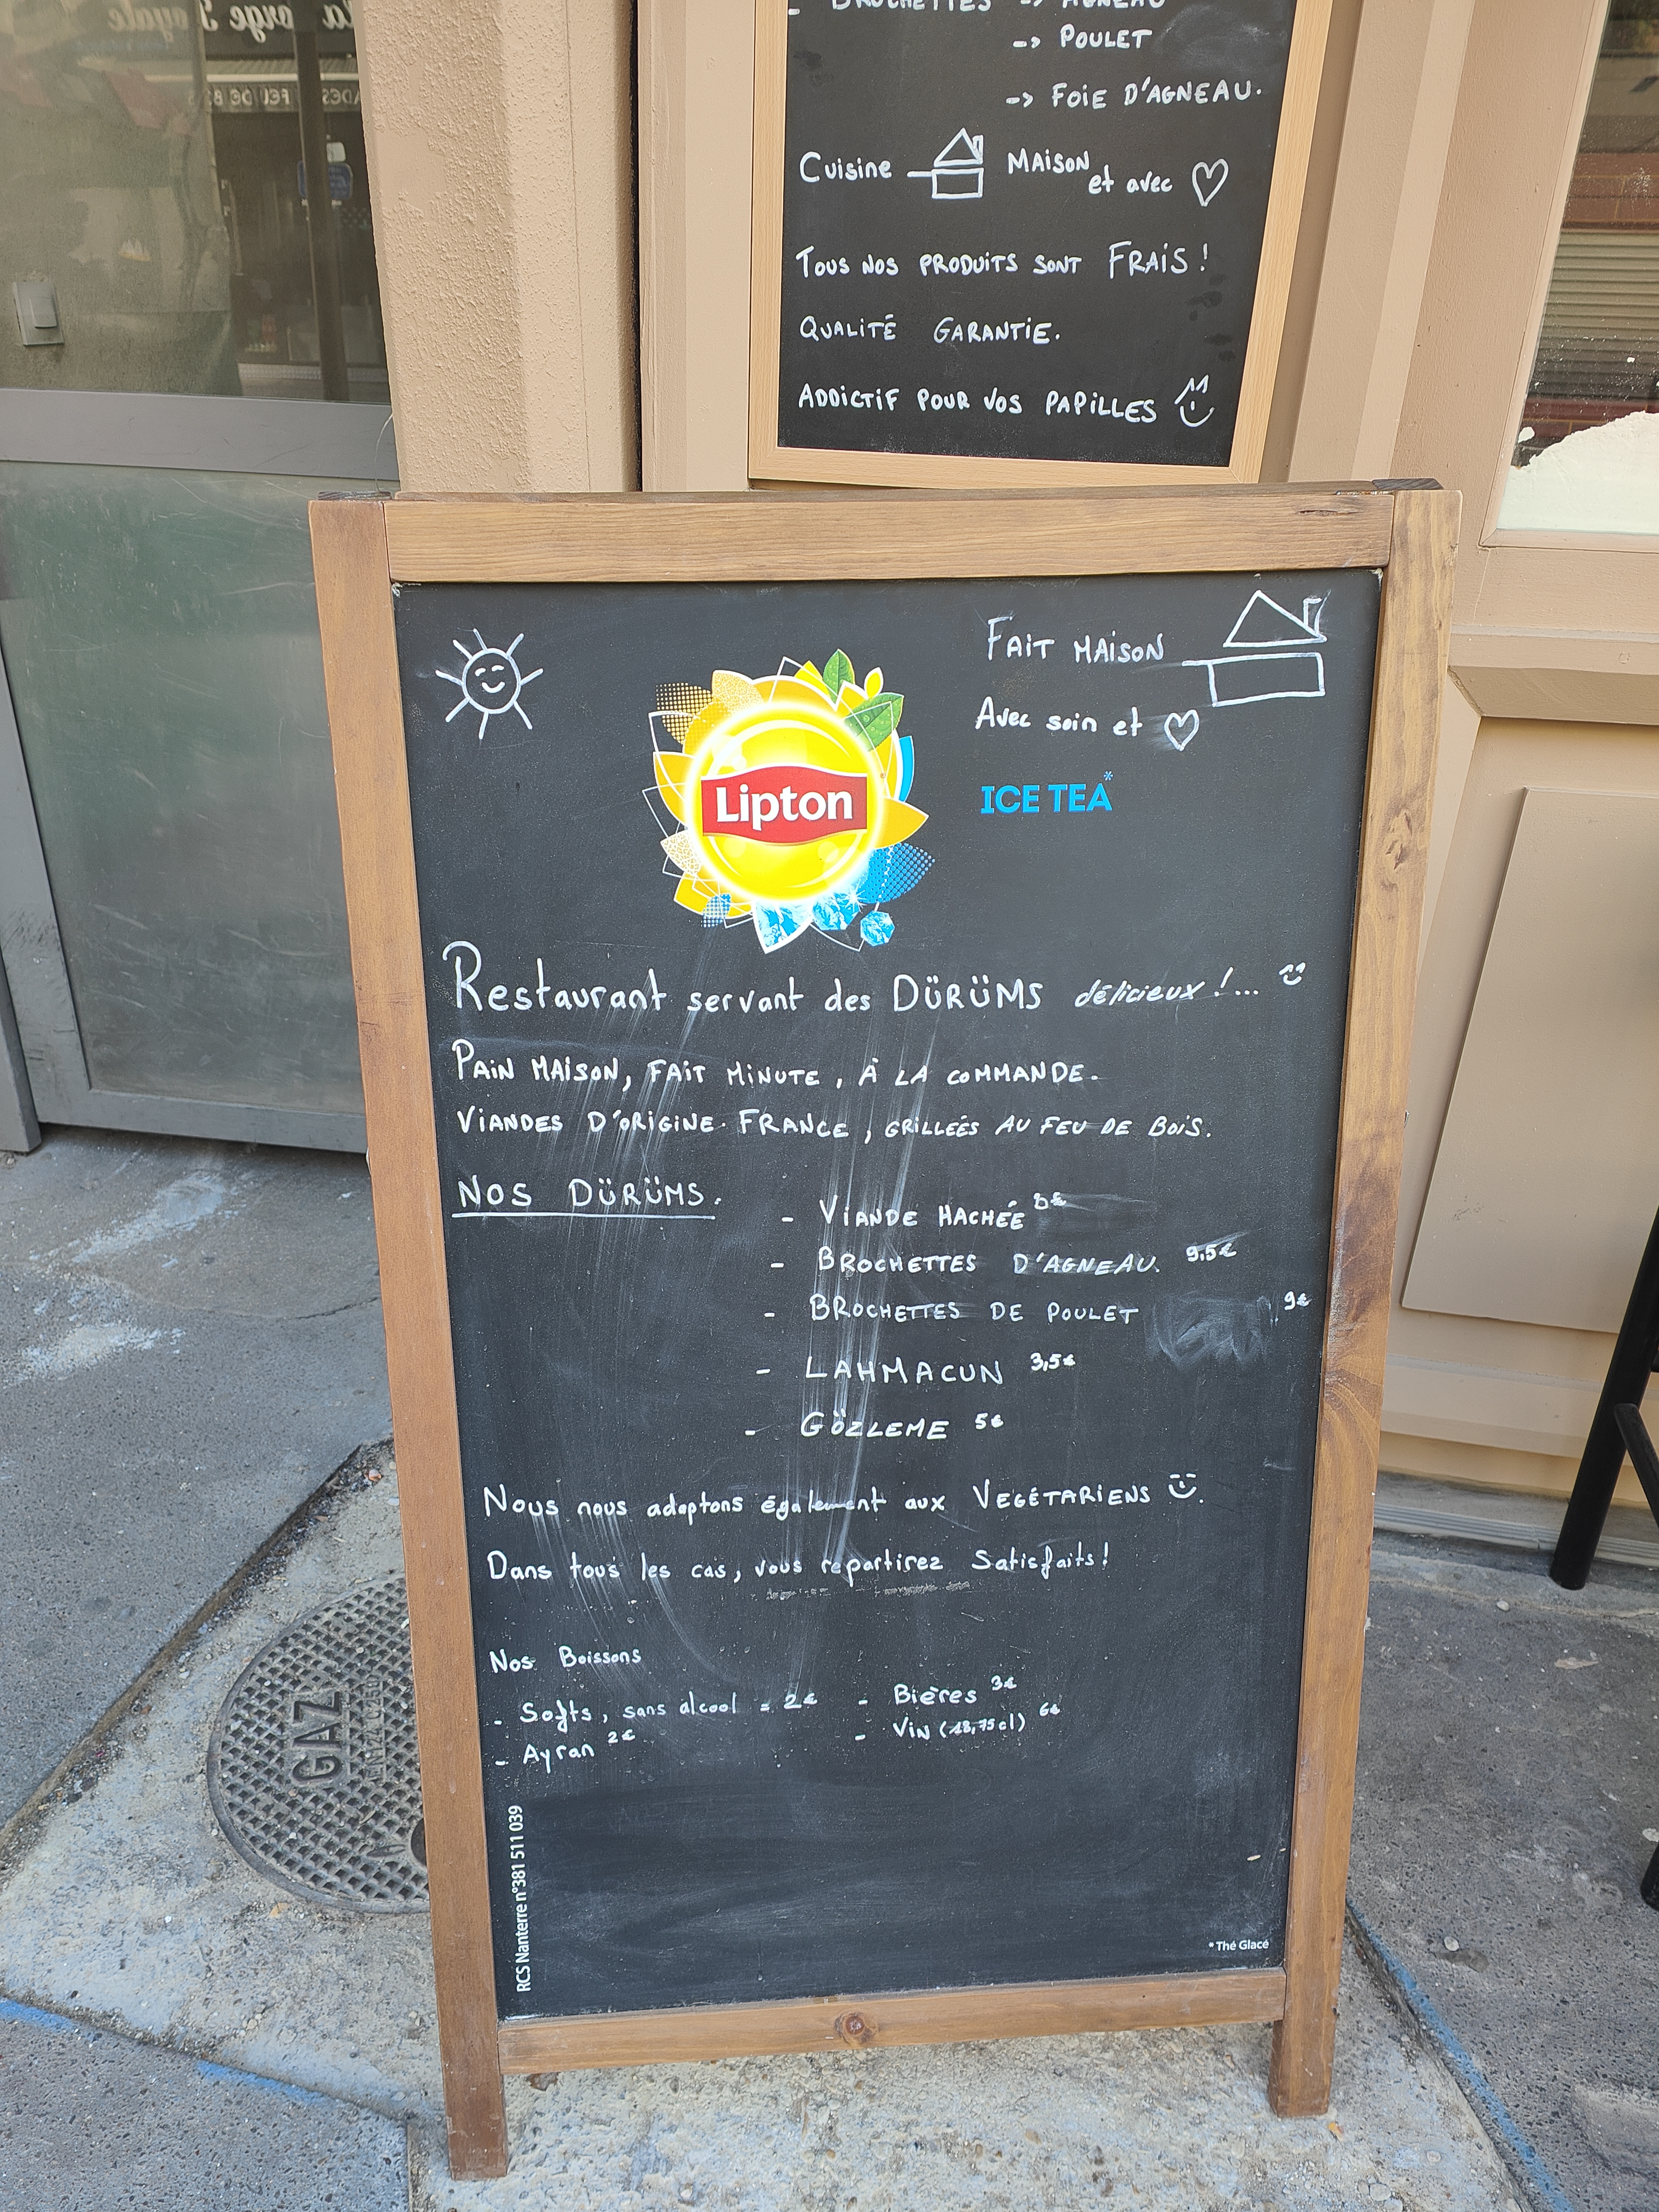 BROCHETTES -> AGNEAU
-> POULET
-> FOIE D'AGNEAU.
Cuisine MAISON et avec
TOUS NOS PRODUITS SONT FRAIS !
QUALITÉ GARANTIE.
ADDICTIF POUR VOS PAPILLES
FAIT MAISON
Avec soin et
Lipton
ICE TEA*
Restaurant servant des DÜRÜMS délicieux !...
PAIN MAISON, FAIT MINUTE, À LA COMMANDE.
VIANDES D'ORIGINE FRANCE, GRILLÉES AU FEU DE BOIS.
NOS DÜRÜMS.
- VIANDE HACHÉE 8€
- BROCHETTES D'AGNEAU. 9,5€
- BROCHETTES DE POULET 9€
- LAHMACUN 3,5€
- GÖZLEME 5€
Nous nous adaptons également aux VEGÉTARIENS
Dans tous les cas, vous repartirez Satisfaits!
Nos Boissons
- Softs, sans alcool = 2€
- Ayran 2€
- Bières 3€
- Vin (18,75cl) 6€
RCS Nanterre n°381 511 039
* Thé Glacé
GAZ